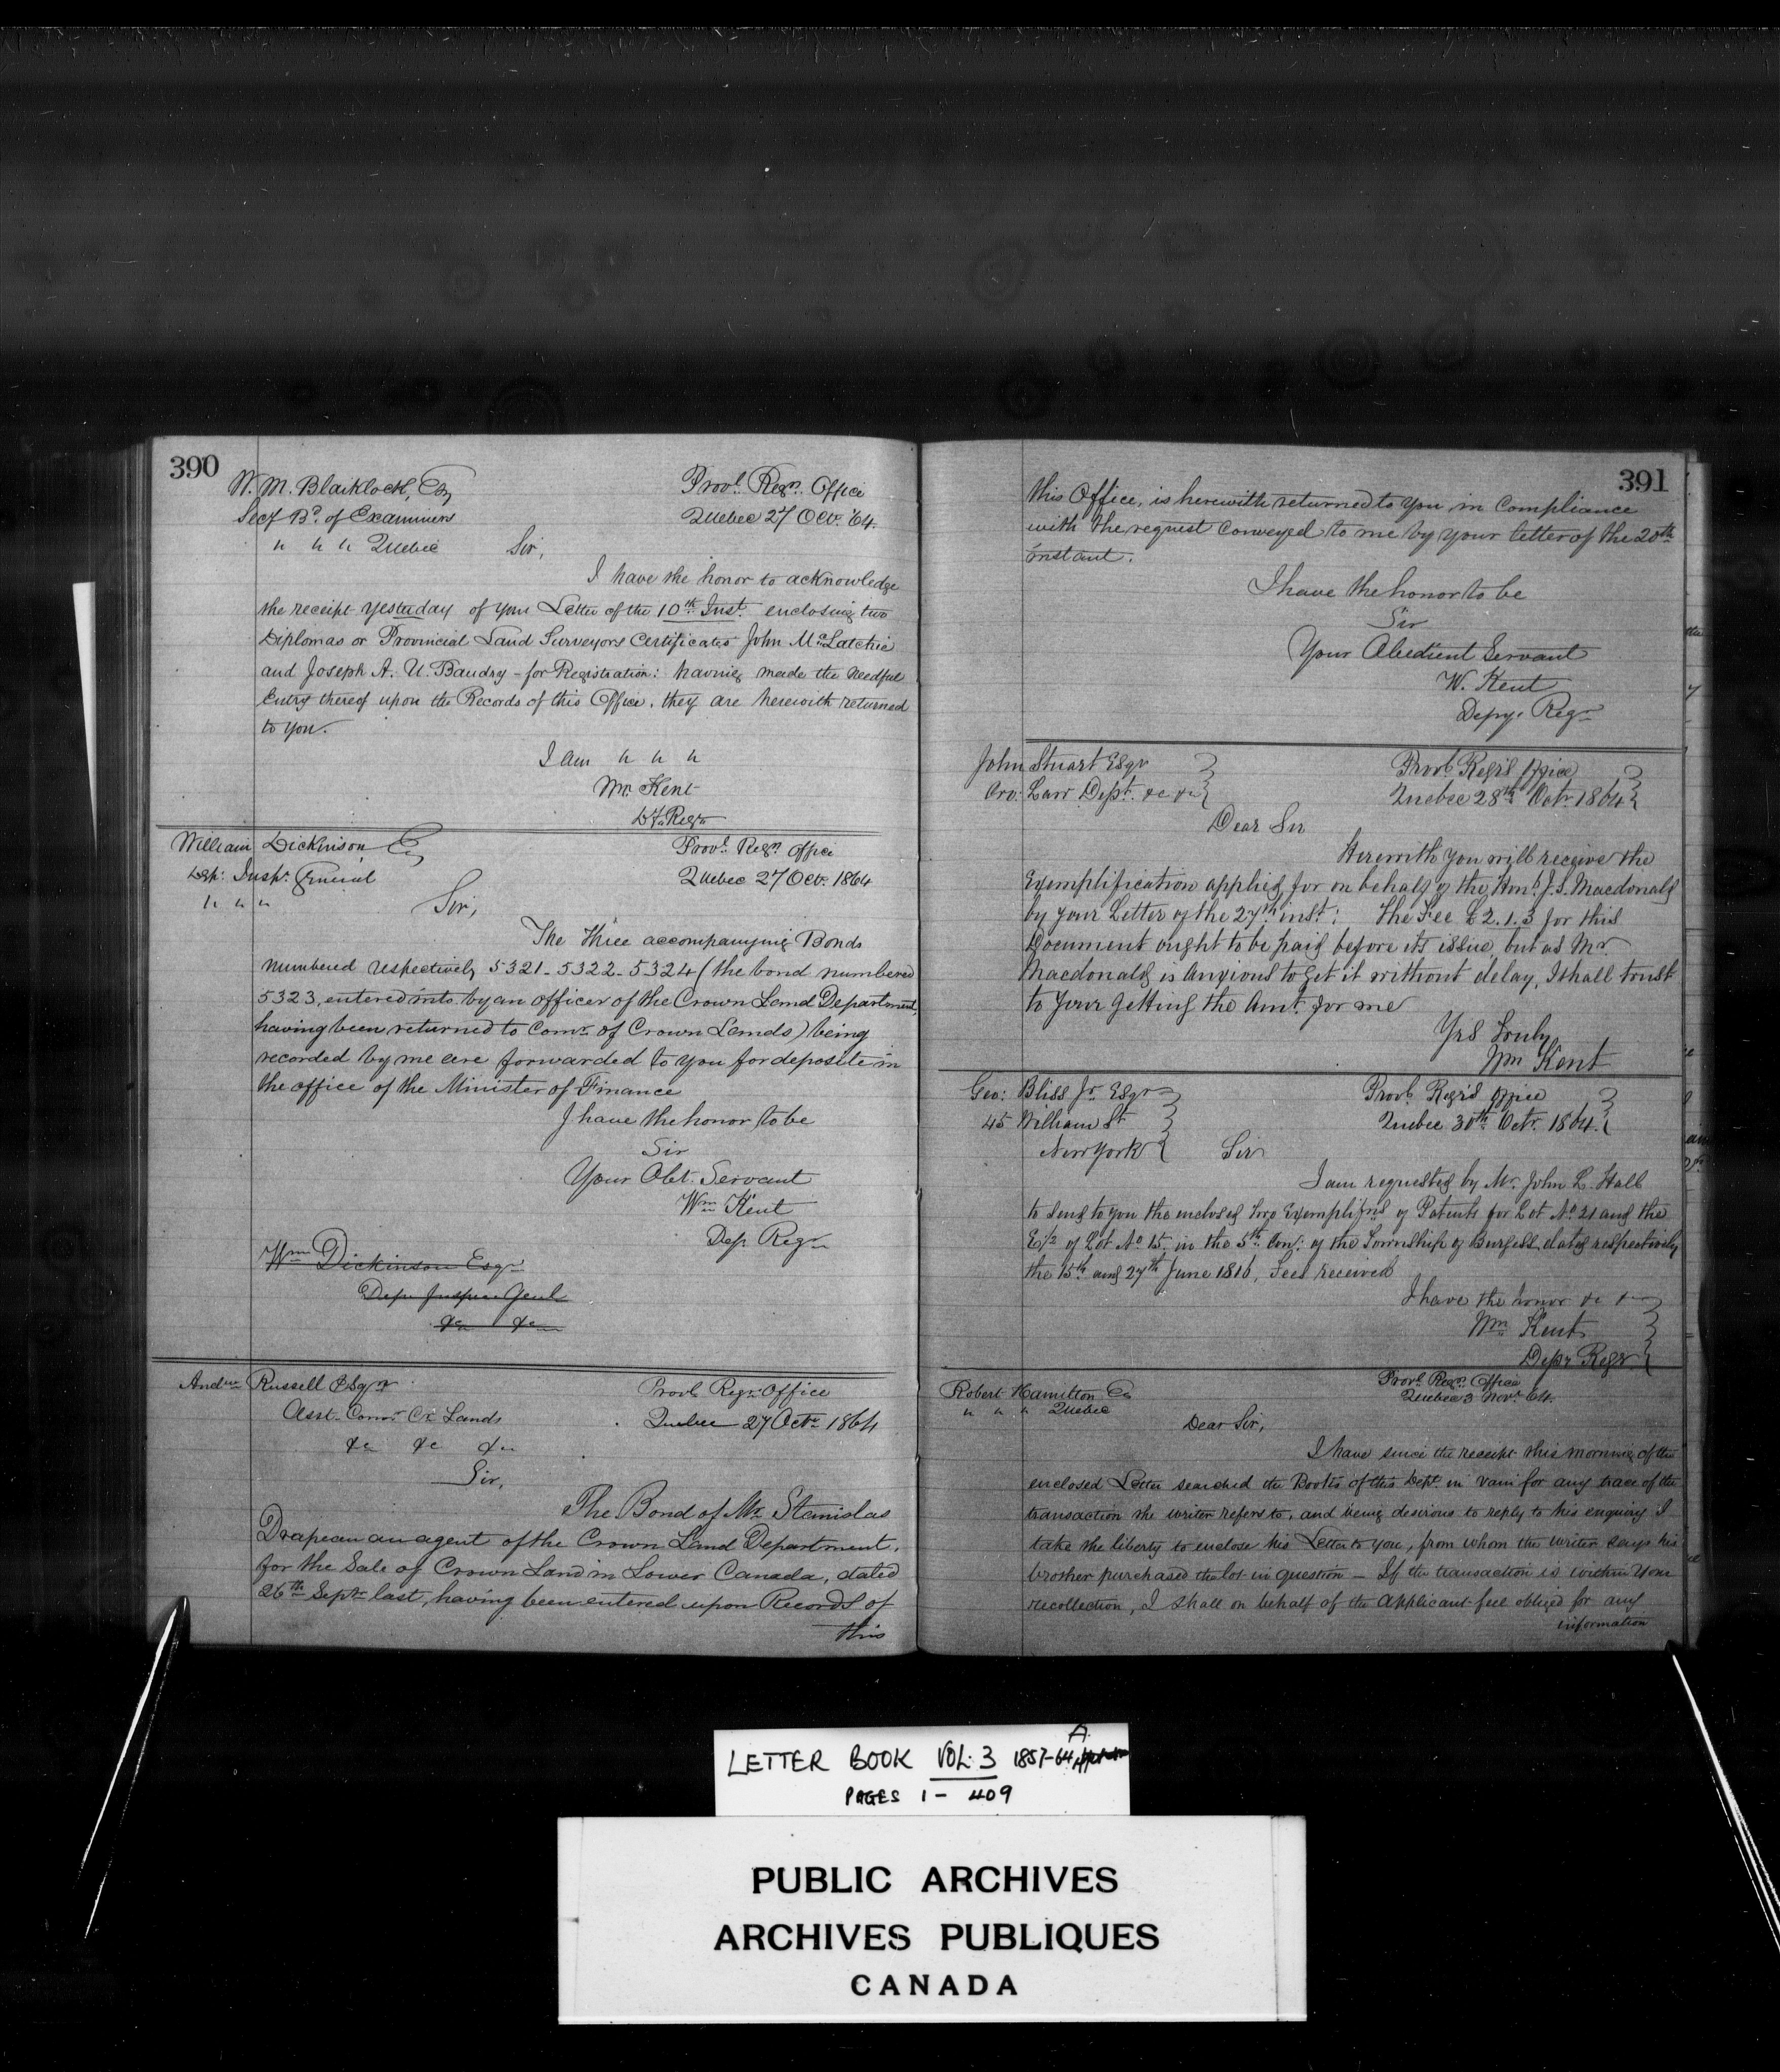 390
W. M. Blaiklock, Esq
Secy Bd. of Examiners
" " " Quebec
Provl. Regrs. Office
Quebec 27 Oct. '64.
Sir,
I have the honor to acknowledge
the receipt yesterday of your Letter of the 10th Inst. enclosing two
Diplomas or Provincial Land Surveyors Certificates John McLatchie
and Joseph A. U. Baudry - for Registration: having made the needful
Entry thereof upon the Records of this Office, they are herewith returned
to you.
I am " " "
Wm Kent
Dy Regr
William Dickinson Esq
Dep: Inspr. General
" " "
Provl. Regrs. Office
Quebec 27 Oct. 1864
Sir,
The three accompanying Bonds
numbered respectively 5321 - 5322 - 5324 (the bond numbered
5323, entered into by an officer of the Crown Land Department,
having been returned to Comr. of Crown Lands) being
recorded by me are forwarded to you for deposite in
the office of the Minister of Finance
I have the honor to be
Sir
Your Obt. Servant
Wm Kent
Dep. Regr
Wm Dickinson Esqr
Depy Inspr Genl
&c &c
Andw Russell Esqr
Asst. Comr. Cr. Lands
&c &c &c
Provl. Regrs. Office
Quebec 27 Octr. 1864
Sir,
The Bond of Mr. Stanislas
Drapeau an agent of the Crown Land Department,
for the Sale of Crown Land in Lower Canada, dated
26th Septr. last, having been entered upon Records of
this
391
this Office, is herewith returned to you in compliance
with the request conveyed to me by your letter of the 20th
instant.
I have the honor to be
Sir
Your Obedient Servant
W. Kent
Depy. Regr
John Stuart Esqr
Cro: Law Dept. &c &c
Provl. Regrs Office
Quebec 28th Octr 1864
Dear Sir
Herewith you will receive the
Exemplification applied for on behalf of the Honl. J. S. Macdonald
by your Letter of the 27th inst: The Fee £2.1.3 for this
Document ought to be paid before its issue, but as Mr
Macdonald is anxious to get it without delay, I shall trust
to your getting the Amt. for me
Yrs Truly
Wm Kent
Geo: Bliss Jr. Esqr
45 William St
New York
Provl. Regrs Office
Quebec 30th Octr. 1864.
Sir
I am requested by Mr. John L. Hall
to send to you the enclosed two Exemplifns of Patents for Lot No. 21 and the
E½ of Lot No. 15. in the 5th Con: of the Township of Burgess dated respectively
the 15th and 27th June 1816, Fees received
I have the honor &c &c
Wm Kent
Depy Regr
Robert Hamilton Esq
" " " Quebec
Provl. Regrs. Office
Quebec 3 Novr. 64.
Dear Sir,
I have since the receipt this morning of the
enclosed Letter searched the Books of this Dept. in vain for any trace of the
transaction the writer refers to, and being desirous to reply to his enquiry I
take the liberty to enclose his Letter to you, from whom the writer says his
brother purchased the lot in question - If the transaction is within your
recollection, I shall on behalf of the applicant feel obliged for any
information
LETTER BOOK VOL. 3 1857-64 A.
PAGES 1 - 409
PUBLIC ARCHIVES
ARCHIVES PUBLIQUES
CANADA